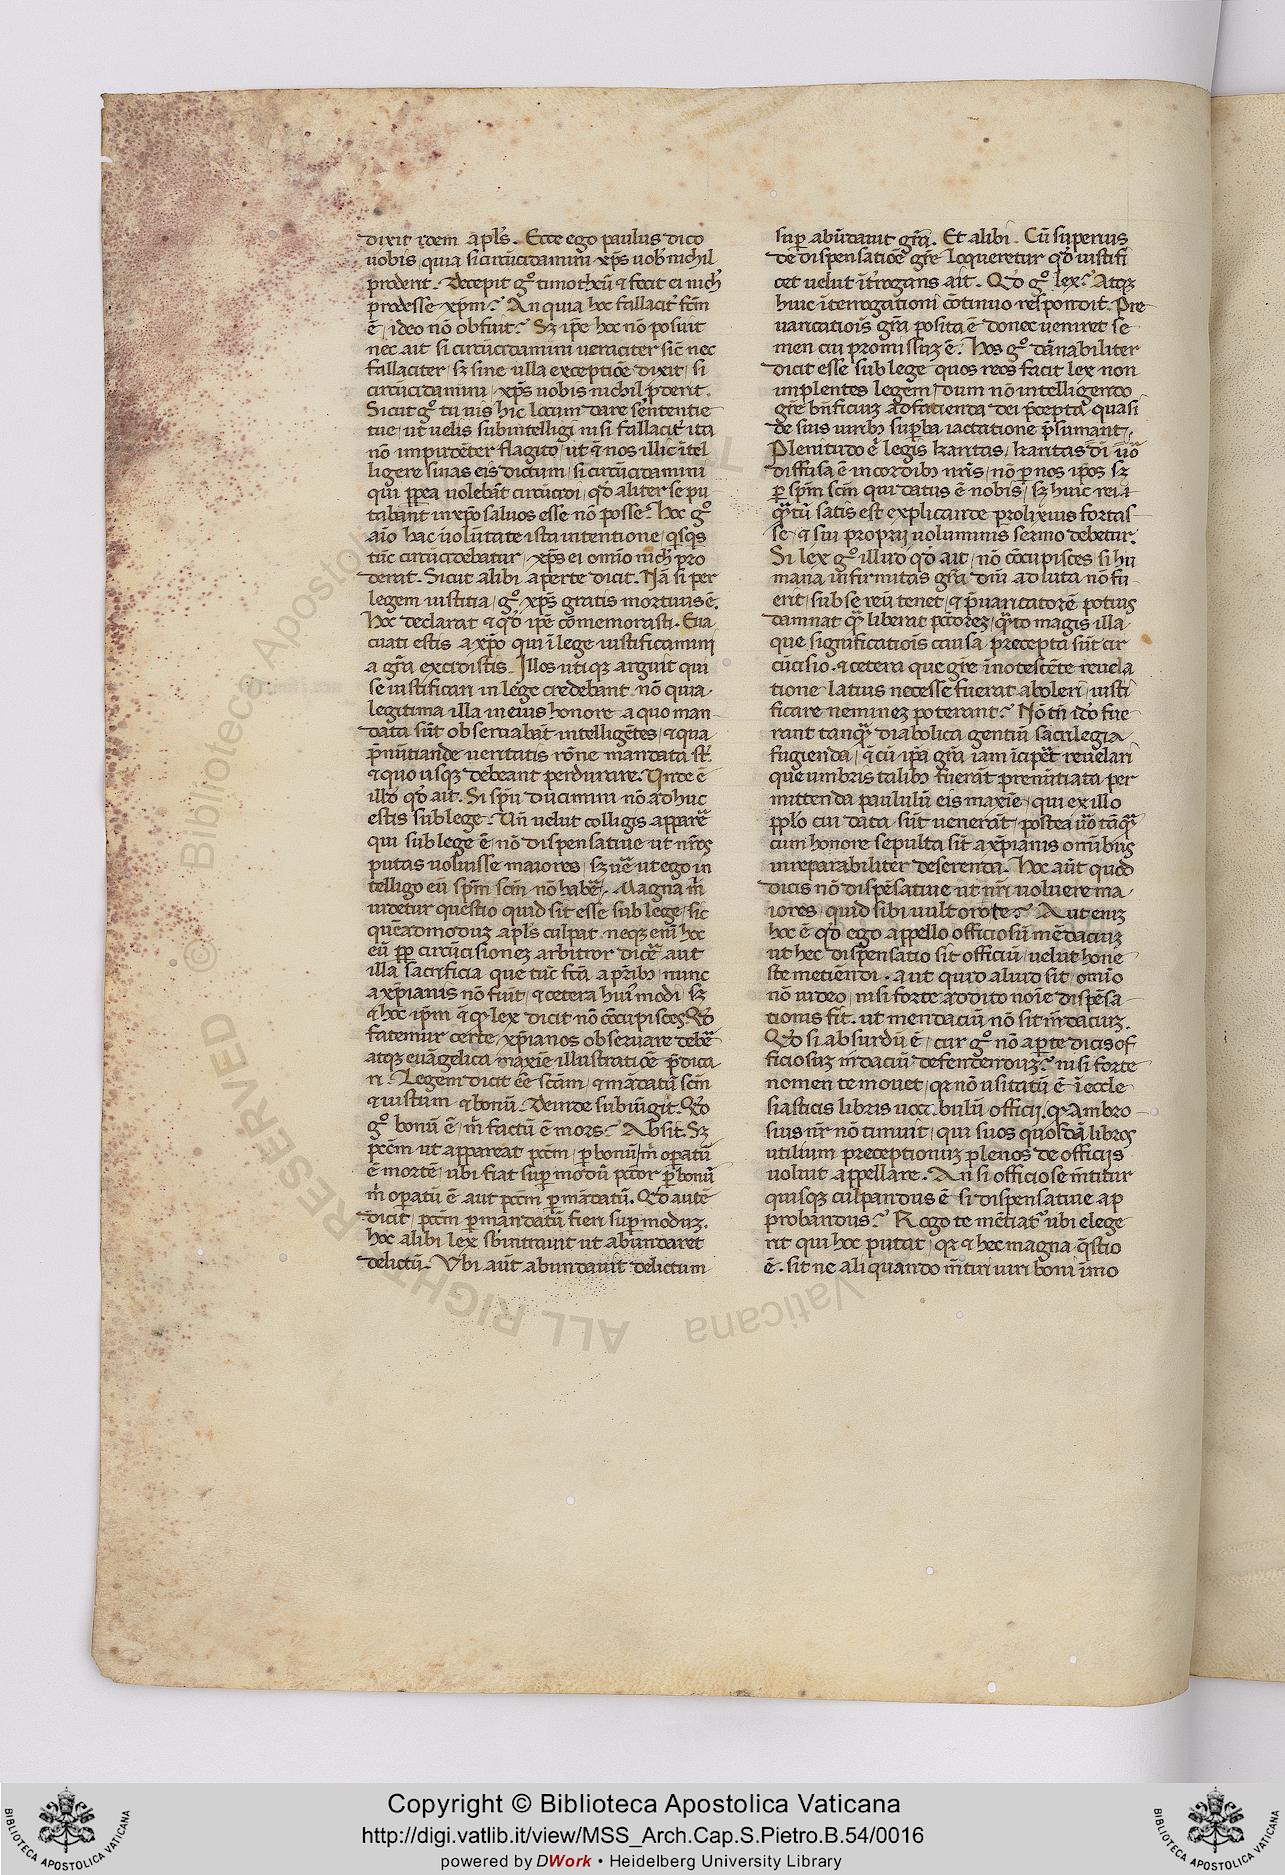 dixit idem apl̃s. Ecce ego paulus dico
uobis, quia si circũcidamini xp̃s uob̾ nichil
proderit. Decepit gͦ timothẽũ & fecit ei nich̾
prodesse xp̃m? An quia hoc fallacit̾ fcm̃
ẽ, ideo nõ obfuit? Sꝫ ip̃e hoc nõ posuit
nec ait si circũcidamini ueraciter sic̃ nec
fallaciter, sꝫ sine ulla exceptiõe dixit, si
circũcidamini, xp̃s uobis nichil p̾derit.
Sicut gͦ tu uis hic locum dare sententie
tue, ut uelis subintelligi nisi fallacit̾ ita
nõ impudẽter flagito, ut & nos illic ĩtel
ligere sinas eis dictum, si circũcidamini
qui ꝓpea uolebãt circũcidi, qd̾ aliter se pu
tabant in xp̃o saluos esse nõ posse. Hoc gͦ
aĩo hac uolũtate ista intentione, qͥsqͥs
tũc circũcidebatur, xp̃s ei omĩo nich̾ pro
derat. Sicut alibi aperte dicit. Nã si per
legem iustitia, gͦ xp̃s gratis mortuus ẽ.
Hoc declarat & qd̾ ip̃e cõmemorasti. Eua
cuati estis a xp̃o qui ĩ lege iustificamini
a gr̃a excidistis. Illos utiqꝫ arguit qui
se iustificari in lege credebant, nõ quia
legitima illa in eius honore a quo man
data sũt obseruabãt intelligẽtes, & qua
p̃nũtiande ueritatis rõne mandata st̃.
& quo usqꝫ debeant perdurare. Unde ẽ
illd̾ qd̾ ait. Si spũ ducimini nõ adhuc
estis sub lege. Uñ uelut colligis apparẽ
qui sub lege ẽ, nõ dispensatiue ut nr̃os
putas uoluisse maiores, sꝫ uẽ ut ego in
telligo eũ spm̃ scm̃ nõ habẽ. Magna m̾
uidetur questio quid sit esse sub lege, sic
quẽadmoduꝫ apl̃s culpat. neqꝫ eni̾ hoc
eũ ꝓp̾ circũcisioneꝫ arbitror dicẽ aut
illa sacrificia que tũc fcã a pr̃ibꝫ, nunc
a xp̃ianis nõ fiũt, & cetera hui̾ modi, sꝫ
& hoc ip̃m & qꝫ lex dicit nõ cõcupisces. Qd̾
fatemur certe, xp̃ianos obseruare debẽ
atqꝫ euãgelica maxĩe illustratiõe p̃dica
ri. Legem dicit eẽ scãm, & mãdatũ scm̃
& iustum & bonũ. Deinde subiũgit. Qd̾
gͦ bonũ ẽ, m̾ factũ ẽ mors? Absit. Sꝫ
pcc̃m ut appareat pcc̃m, ꝑ bonũ m̾ opatũ
ẽ mortẽ, ubi fiat supͣ modũ pcc̃or ꝑ bonũ
m̾ opatũ ẽ aut pcc̃m ꝑ mãdatũ. Qd̾ autẽ
dicit, pcc̃m ꝑ mandatũ fieri supͣ moduꝫ.
hoc alibi lex sb̾intrauit ut abũndaret
delictũ. Vbi aũt abundauit delictum
sup abũdauit gr̃a. Et alibi. Cũ superius
de dispensatiõe gr̃e loqueretur qd̾ iustifi
cet uelut ĩt̾rogans ait. Qd̾ gͦ lex? Atqꝫ
huic ĩterrogationi cõtinuo respondit. Pre
uaricatiois gr̃a posita ẽ donec ueniret se
men cui promissuꝫ ẽ. Hos gͦ dãnabiliter
dicit esse sub lege quos reos facit lex non
implentes legem, dum nõ intelligendo
gr̃e bñficiuꝫ ad facienda dei p̃cepta quasi
de suis uiribꝫ supba iactatione p̃sumant.
Plenitudo e̾ legis karitas, karitas di̾ uͦo
diffusa ẽ in cordibꝫ nr̃is, nõ ꝑ nos ip̃os sꝫ
ꝑ spm̃ scm̃ qui datus ẽ nobis, sꝫ huic rei
qͣtũ satis est explicande prolixius fortas
se, & sui proprii uoluminis sermo debetur.
Si lex gͦ illud qd̾ ait, nõ cõcupisces, si hu
mana infirmitas gr̃a dei̾ adiuta nõ fu
erit, sub se reũ tenet, & p̃uaricatorẽ potius
damnat qͣ liberat pcc̃oreꝫ, qͣto magis illa
que significatiois causa precepta sũt cir
cũcisio, & cetera que gr̃e inotescẽte reuela
tione latius necesse fuerat aboleri, iusti
ficare nemineꝫ poterant? Nõ tñ id̾o fue
rant tanqͣ diabolica gentiũ sacrilegia
fugienda, & cũ ip̃a gr̃a iam ĩcipẽt reuelari
que umbris talibꝫ fuerãt prenũtiata per
mittenda paululũ eis maxiẽ, qui ex illo
pp̃lo cui data sũt uenerãt, postea uͦo tãqͣ
cum honore sepulta sũt a xp̃ianis omĩbus
irreparabiliter deserenda. Hoc aũt quod
dicis nõ dispẽsatiue ut nr̃i uoluere ma
iores, quid sibi uult oro te? Aut eniꝫ
hoc ẽ qd̾ ego appello officiosũ mẽdaciuꝫ
ut hec dispẽsatio sit officiũ, uelut hone
ste metiẽndi, aut quid aliud sit, omĩo
nõ uideo, nisi forte addito noĩe dispẽsa
tionis fit, ut mendaciũ nõ sit m̃daciuꝫ.
Qd̾ si absurdũ ẽ, cur gͦ nõ apte dicis of
ficiosuꝫ m̃daciũ defendenduꝫ? nisi forte
nomen te mouet, qꝫ nõ usitatũ ẽ ĩ eccle
siasticis libris uocabulũ officij, qd̾ Ambro
sius nr̃ nõ timuit, qui suos quosdã libros
utilium preceptionuꝫ plenos de officijs
uoluit appellare. An si officiose m̃titur
quisqꝫ culpandus ẽ si dispensatiue ap
probandus? Rogo te mẽtiat̾ ubi elege
rit qui hoc putat, qꝫ & hec magna q̃stio
ẽ, sit ne aliquando m̃tiri uiri boni ĩmo
Copyright © Biblioteca Apostolica Vaticana
http://digi.vatlib.it/view/MSS_Arch.Cap.S.Pietro.B.54/0016
powered by DWork • Heidelberg University Library